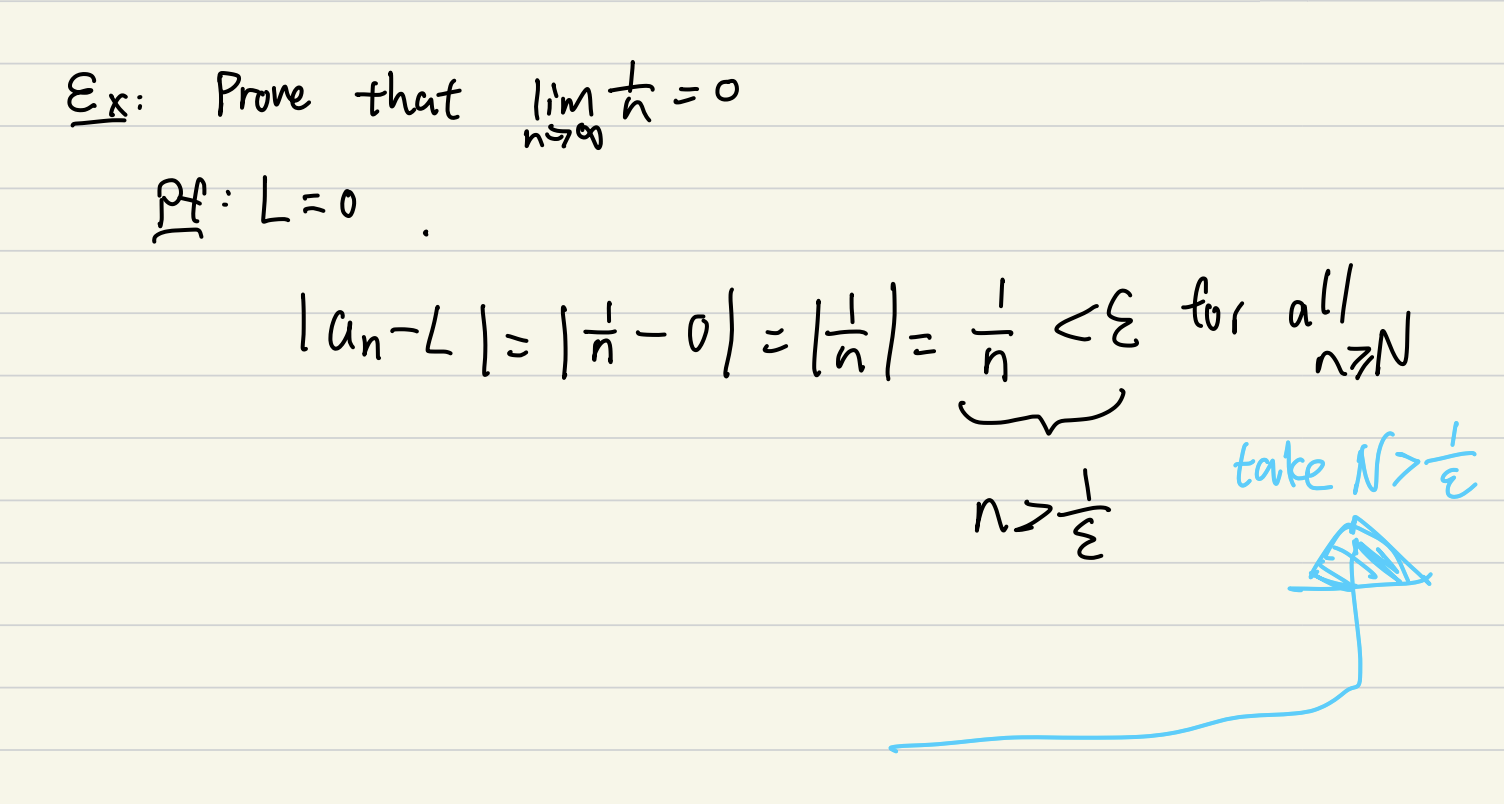 Ex: Prove that lim 1/n = 0
n→∞
Pf: L = 0 .
|an - L| = |1/n - 0| = |1/n| = 1/n < ε for all
n ≥ N
take N > 1/ε
n > 1/ε